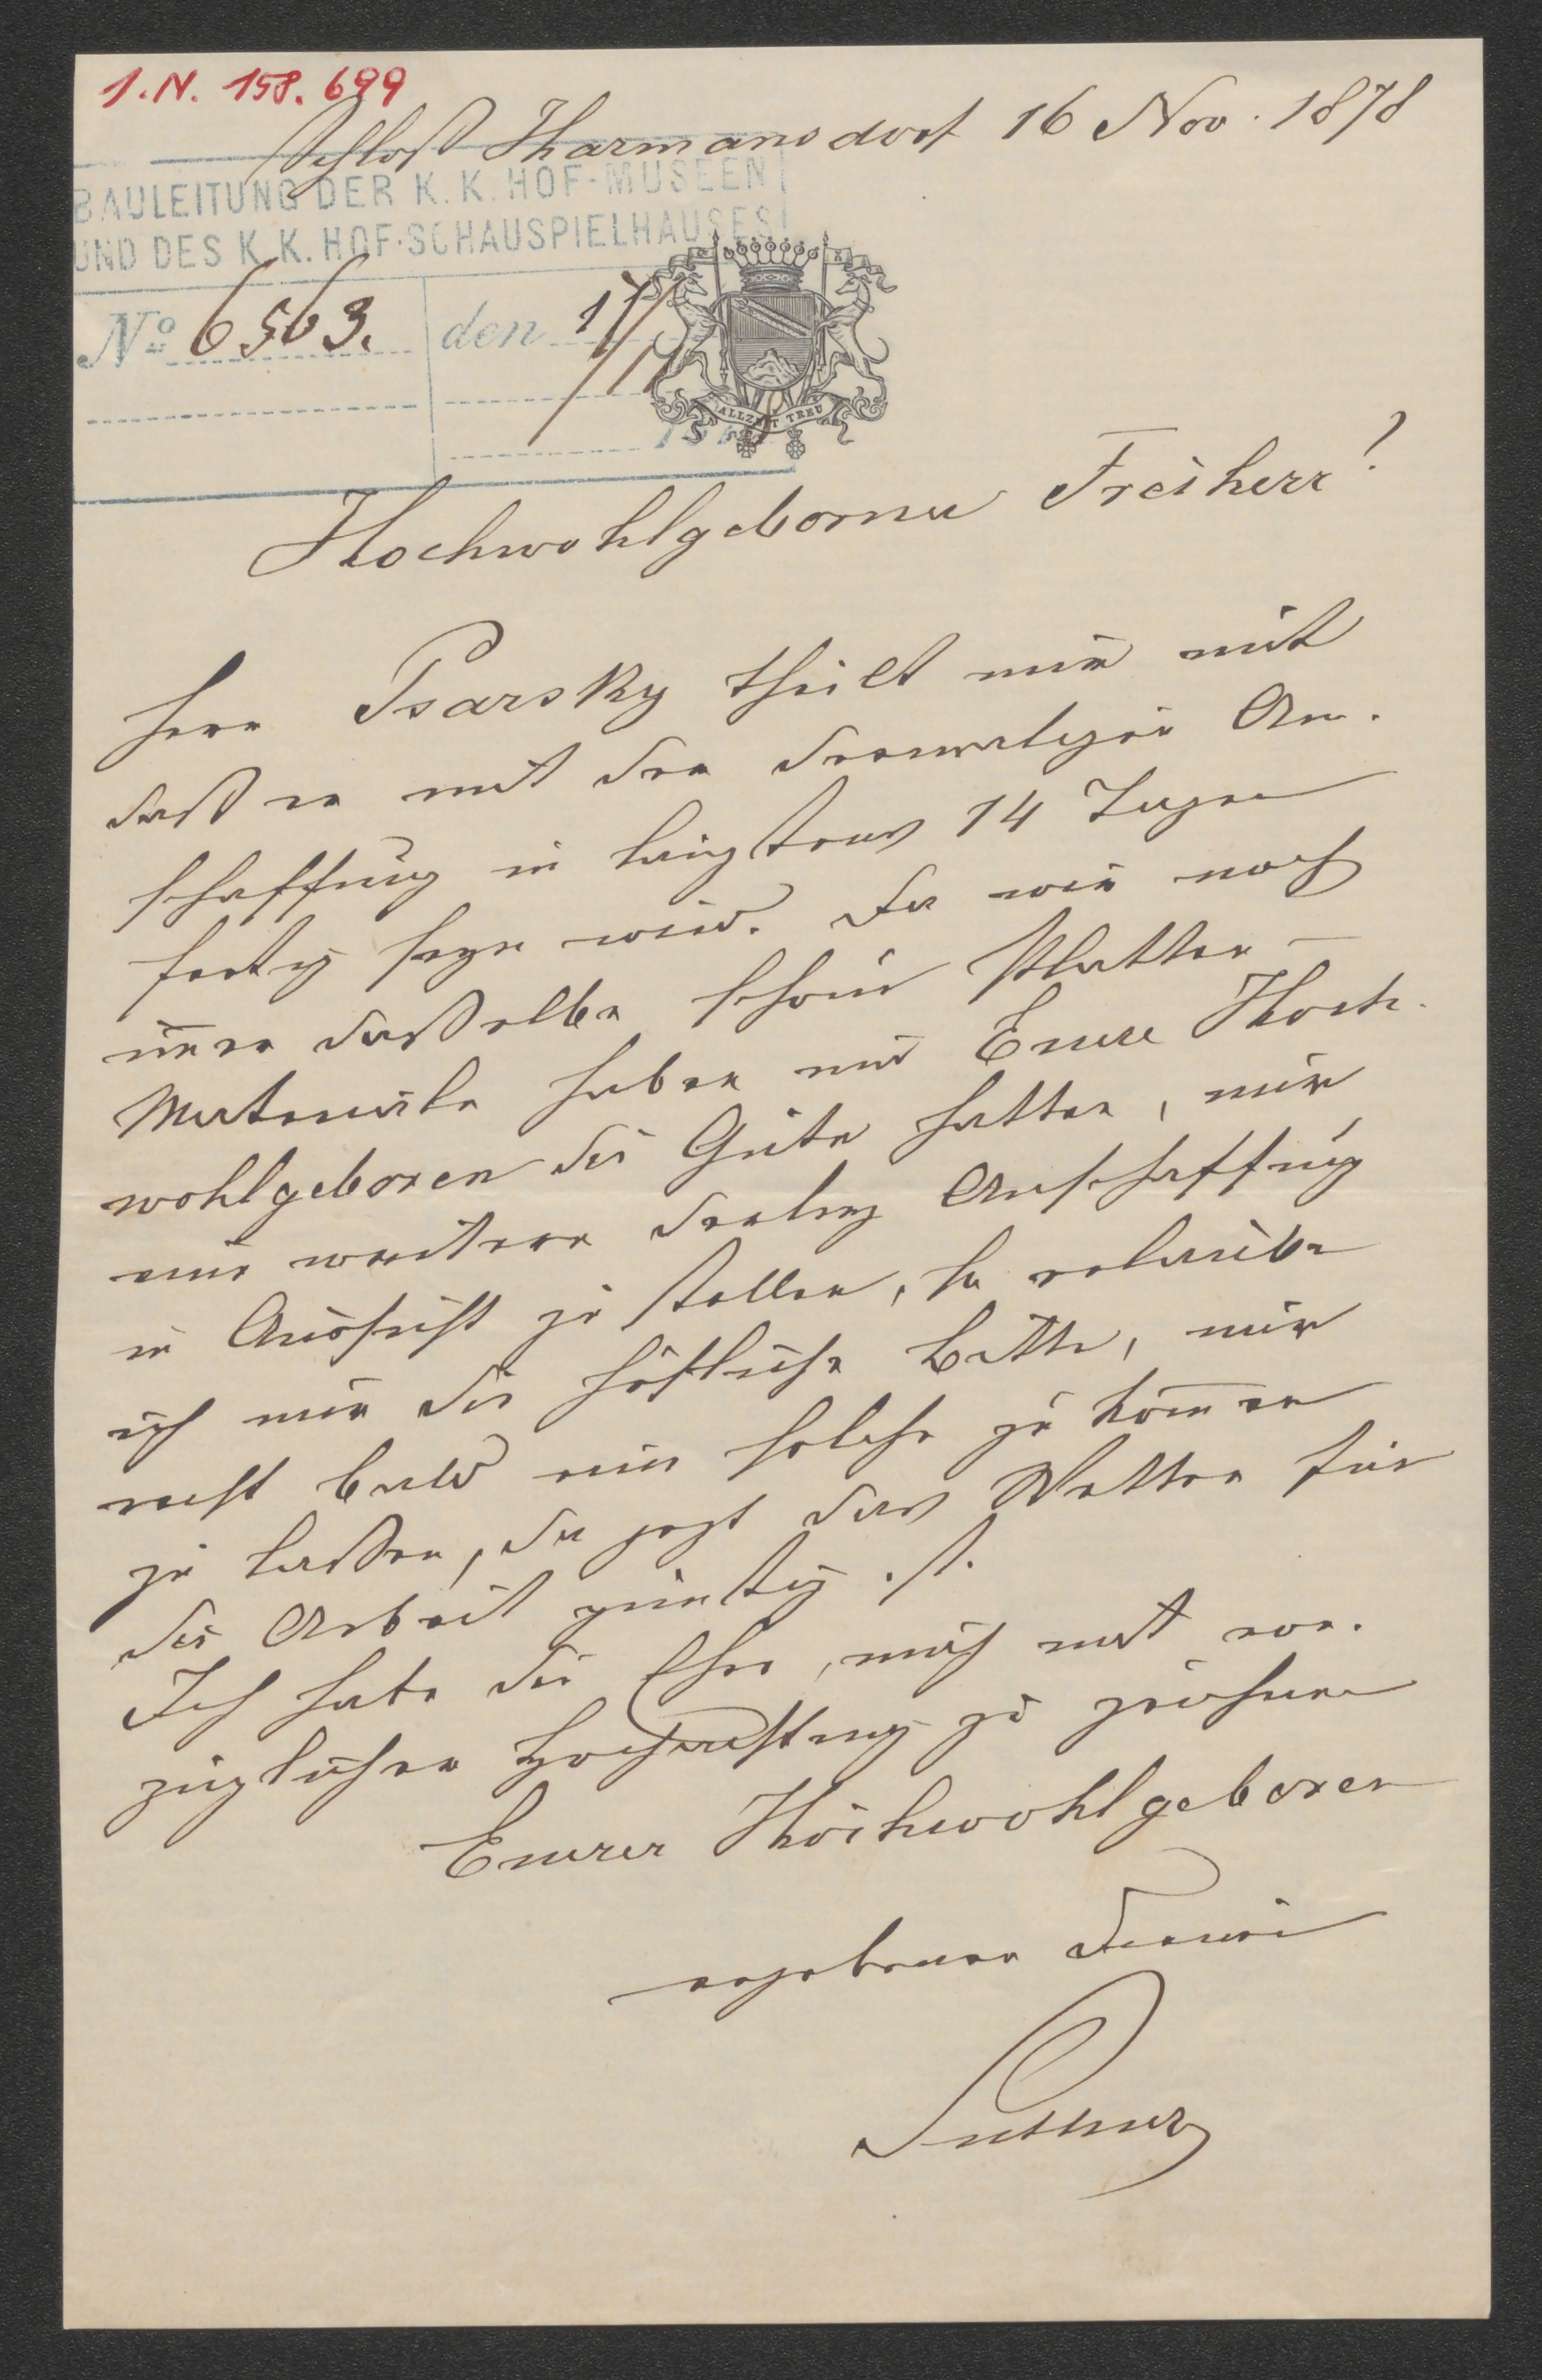 I.N. 158.699
Schloß Harmansdorf 16 Nov. 1878
BAULEITUNG DER K. K. HOF-MUSEEN
UND DES K. K. HOF-SCHAUSPIELHAUSES
No 6563. den 17/11
ALLZEIT TREU
Hochwohlgeborner Freiherr!
Herr Psarsky theilt mir mit
daß er mit der dermaligen An-
schaffung in längstens 14 Tagen
fertig seyn wird. Da wir noch
immer daßelbe schöne Platten-
Materiale haben und Euere Hoch-
wohlgeboren die Güte hatten, mir
eine weitere derley Anschaffung
in Aussicht zu stellen, so erlaube
ich mir die höfliche Bitte, mir
recht bald eine solche zu kommen
zu laßen, da jezt das Wetter für
die Arbeit günstig ist.
Ich habe die Ehre, mich mit vor-
züglicher Hochachtung zu zeichnen
Euerer Hochwohlgeboren
ergebener Diener
Suttner